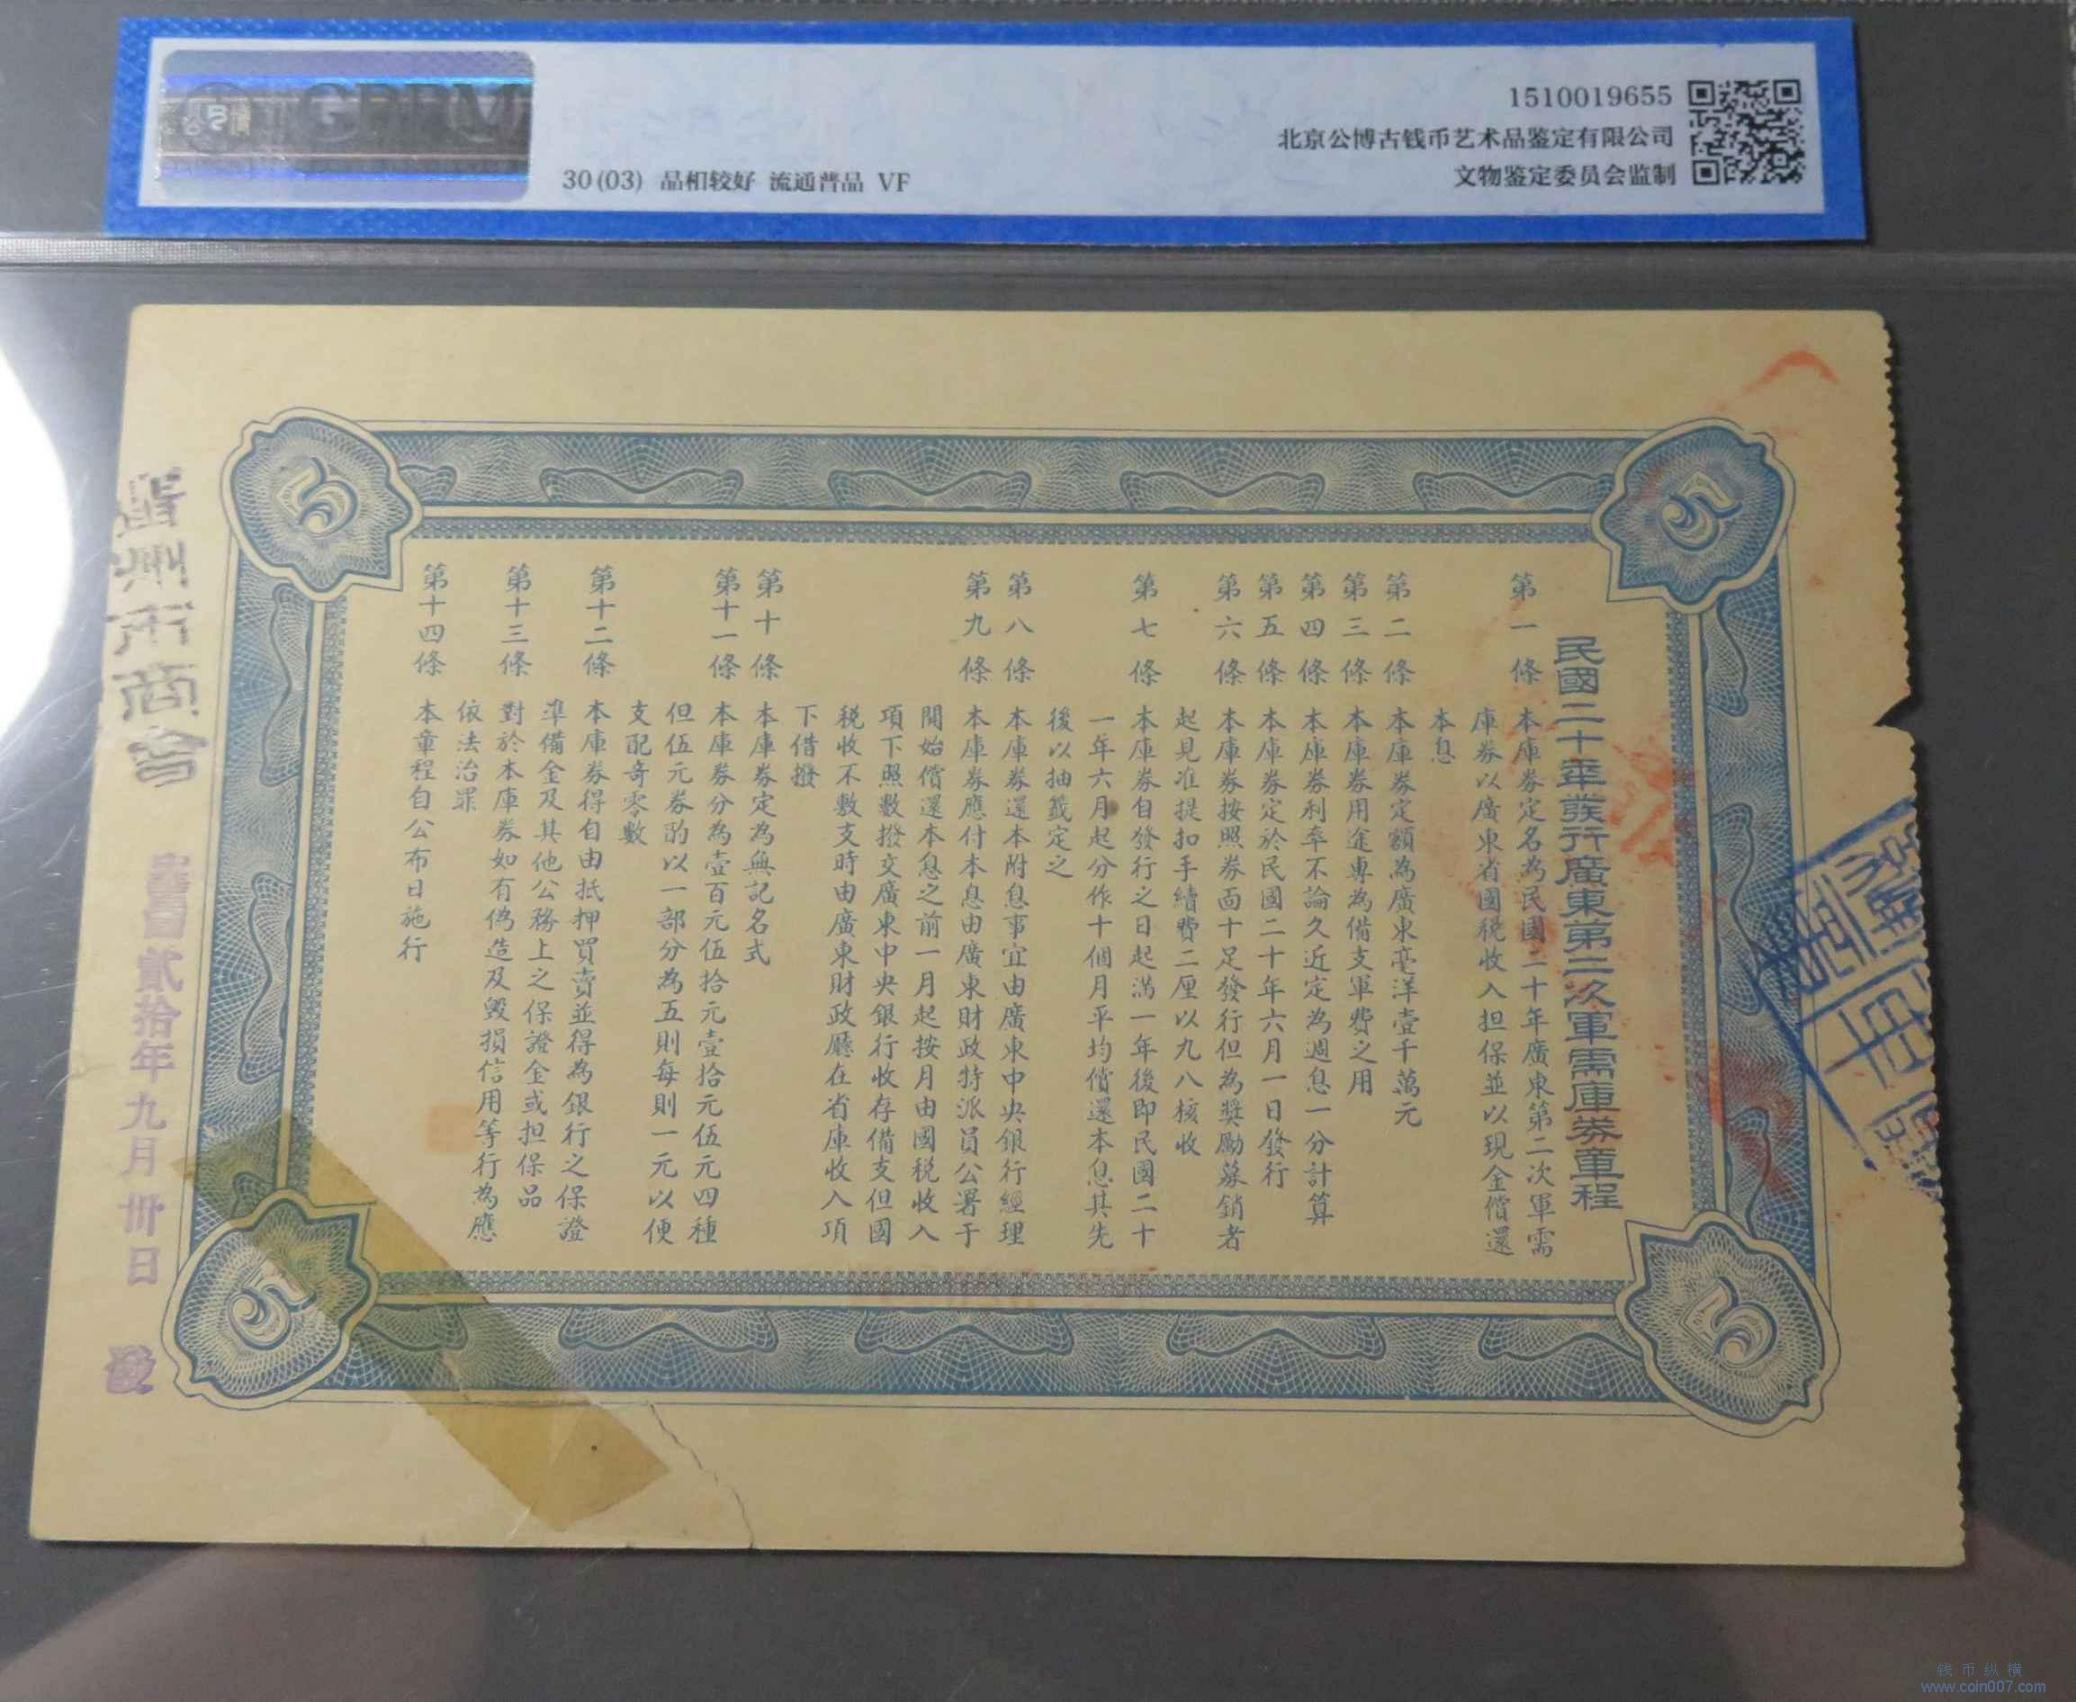 1510019655
北京公博古钱币艺术品鉴定有限公司
文物鉴定委员会监制
30(03) 品相较好 流通普品 VF
5
5
民國二十年發行廣東第二次軍需庫券章程
第一條 本庫券定名為民國二十年廣東第二次軍需
庫券以廣東省國稅收入担保並以現金償還
本息
第二條 本庫券定額為廣東毫洋壹千萬元
第三條 本庫券用途專為備支軍費之用
第四條 本庫券利率不論久近定為週息一分計算
第五條 本庫券定於民國二十年六月一日發行
第六條 本庫券按照券面十足發行但為獎勵募銷者
起見准提扣手續費二厘以九八核收
第七條 本庫券自發行之日起滿一年後即民國二十
一年六月起分作十個月平均償還本息其先
後以抽籤定之
第八條 本庫券還本附息事宜由廣東中央銀行經理
第九條 本庫券應付本息由廣東財政特派員公署于
開始償還本息之前一月起按月由國稅收入
項下照數撥交廣東中央銀行收存備支但國
稅收不敷支時由廣東財政廳在省庫收入項
下借撥
第十條 本庫券定為無記名式
第十一條 本庫券分為壹百元伍拾元壹拾元伍元四種
但伍元券酌以一部分為五則每則一元以便
支配奇零數
第十二條 本庫券得自由抵押買賣並得為銀行之保證
準備金及其他公務上之保證金或担保品
第十三條 對於本庫券如有偽造及毀損信用等行為應
依法治罪
第十四條 本章程自公布日施行
5
5
州市商會
貳拾年九月卅日
钱币纵横
www.coin007.com